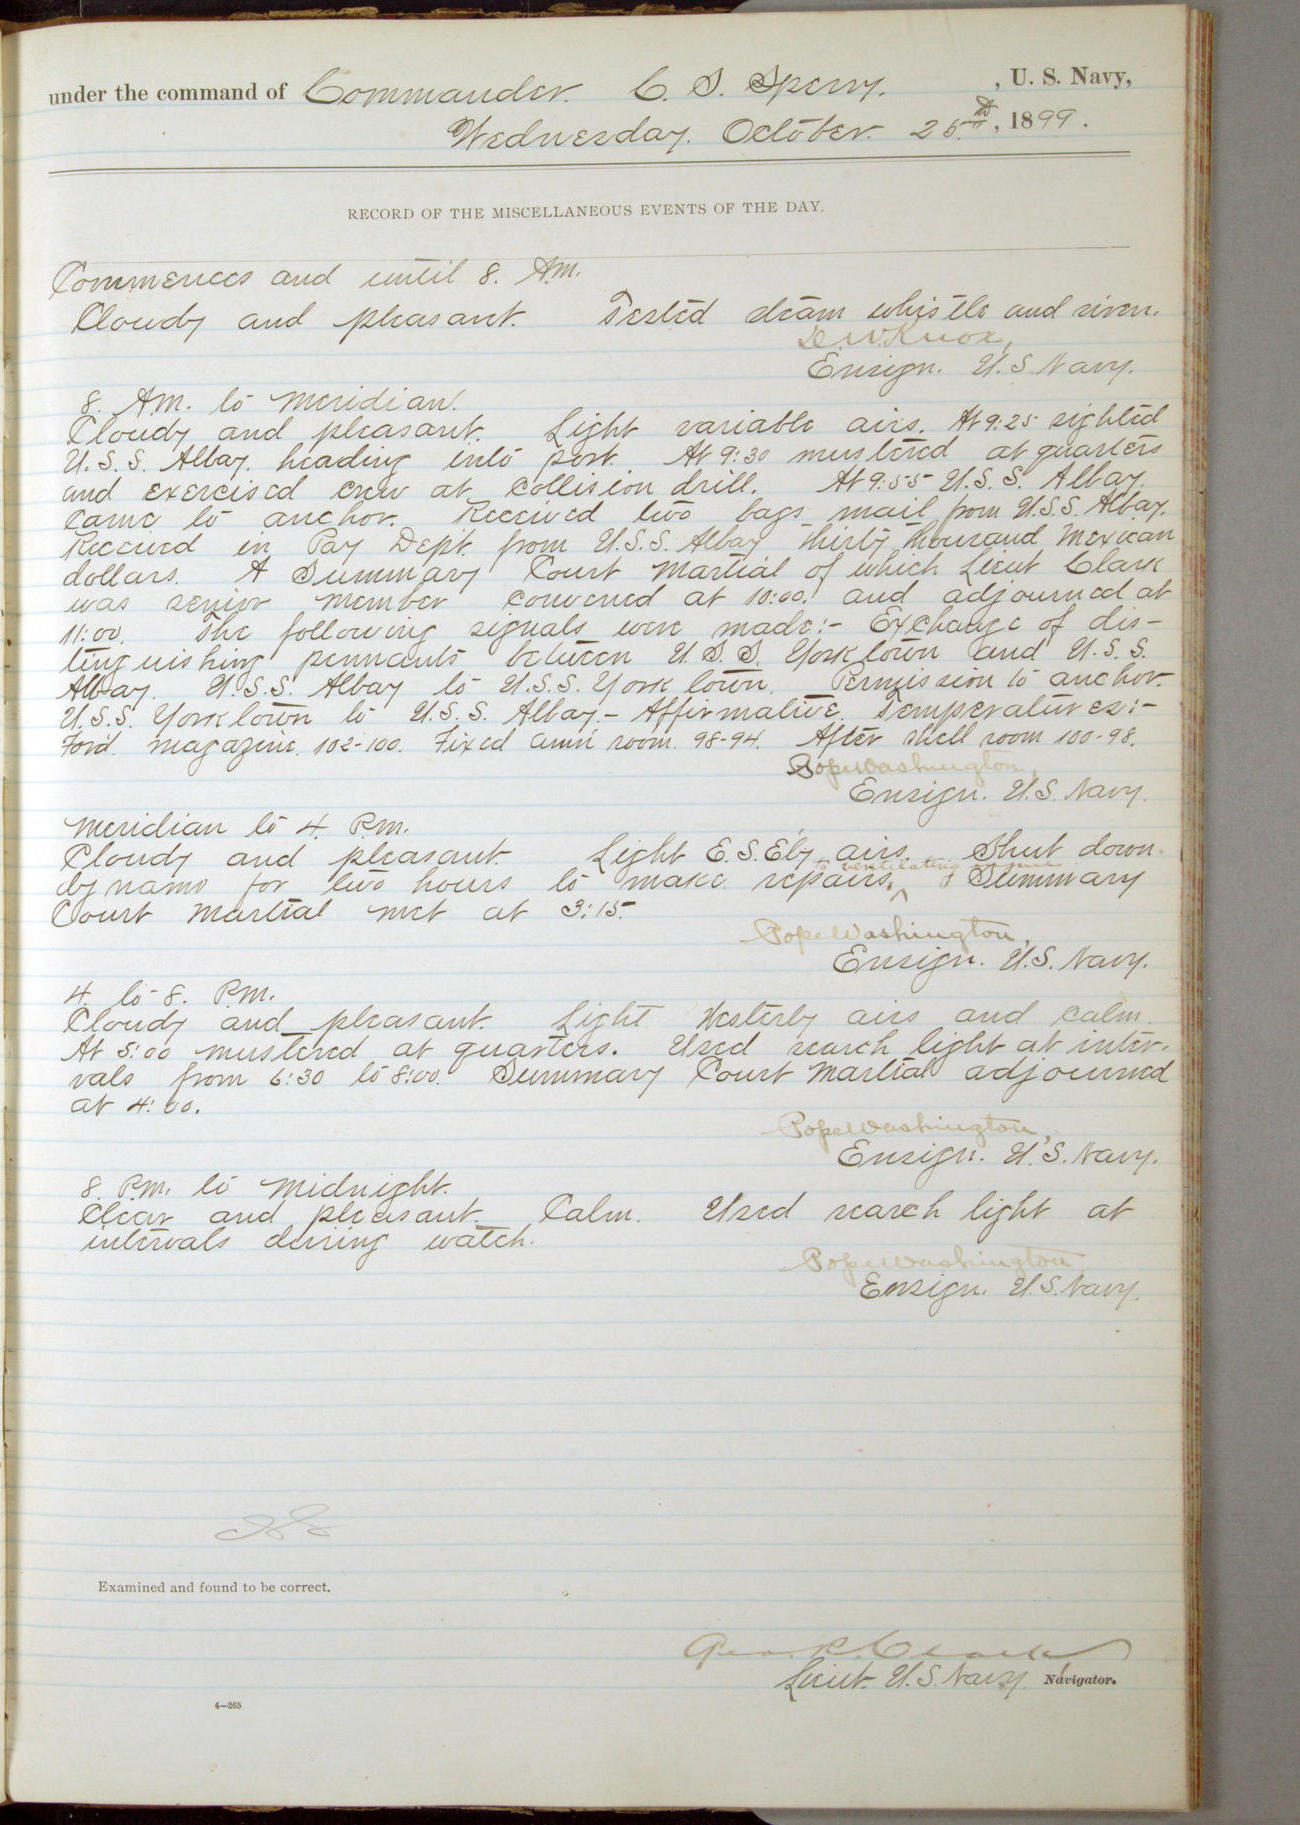 under the command of Commander. C. S. Sperry. , U. S. Navy,
Wednesday. October. 25th, 1899.
RECORD OF THE MISCELLANEOUS EVENTS OF THE DAY.
Commences and until 8. A.M.
Cloudy and pleasant. Tested steam whistle and siren.
D.W. Knox,
Ensign. U.S. Navy.
8. A.M. to Meridian.
Cloudy and pleasant. Light variable airs. At 9:25 sighted
U.S.S. Albay. heading into port. At 9:30 mustered at quarters
and exercised crew at collision drill. At 9:55 U.S.S. Albay.
came to anchor. Received two bags mail from U.S.S. Albay.
Received in Pay Dept. from U.S.S. Albay thirty thousand Mexican
dollars. A Summary Court Martial of which Lieut Clark
was senior member convened at 10:00. and adjourned at
11:00. The following signals were made:- Exchange of dis-
tinguishing pennants between U.S.S. Yorktown and U.S.S.
Albay. U.S.S. Albay to U.S.S. Yorktown. Permission to anchor.
U.S.S. Yorktown to U.S.S. Albay.- Affirmative. Temperatures:-
Ford. magazine. 102-100. Fixed amn room. 98-94. After shell room 100-98.
Pope Washington,
Ensign. U.S. Navy.
Meridian to 4. P.M.
Cloudy and pleasant. Light E.S.E'ly airs. Shut down
ventilating
dynamo for two hours to make repairs. Summary
Court Martial met at 3:15.
Pope Washington,
Ensign. U.S. Navy.
4. to 8. P.M.
Cloudy and pleasant. Light Westerly airs and calm.
At 5:00 mustered at quarters. Used search light at inter-
vals from 6:30 to 8:00. Summary Court Martial adjourned
at 4:00.
Pope Washington,
Ensign. U.S. Navy.
8. P.M. to Midnight.
Clear and pleasant. Calm. Used search light at
intervals during watch.
Pope Washington
Ensign. U.S. Navy.
Examined and found to be correct.
Geo. R. Clark
Lieut. U.S. Navy. Navigator.
4—265